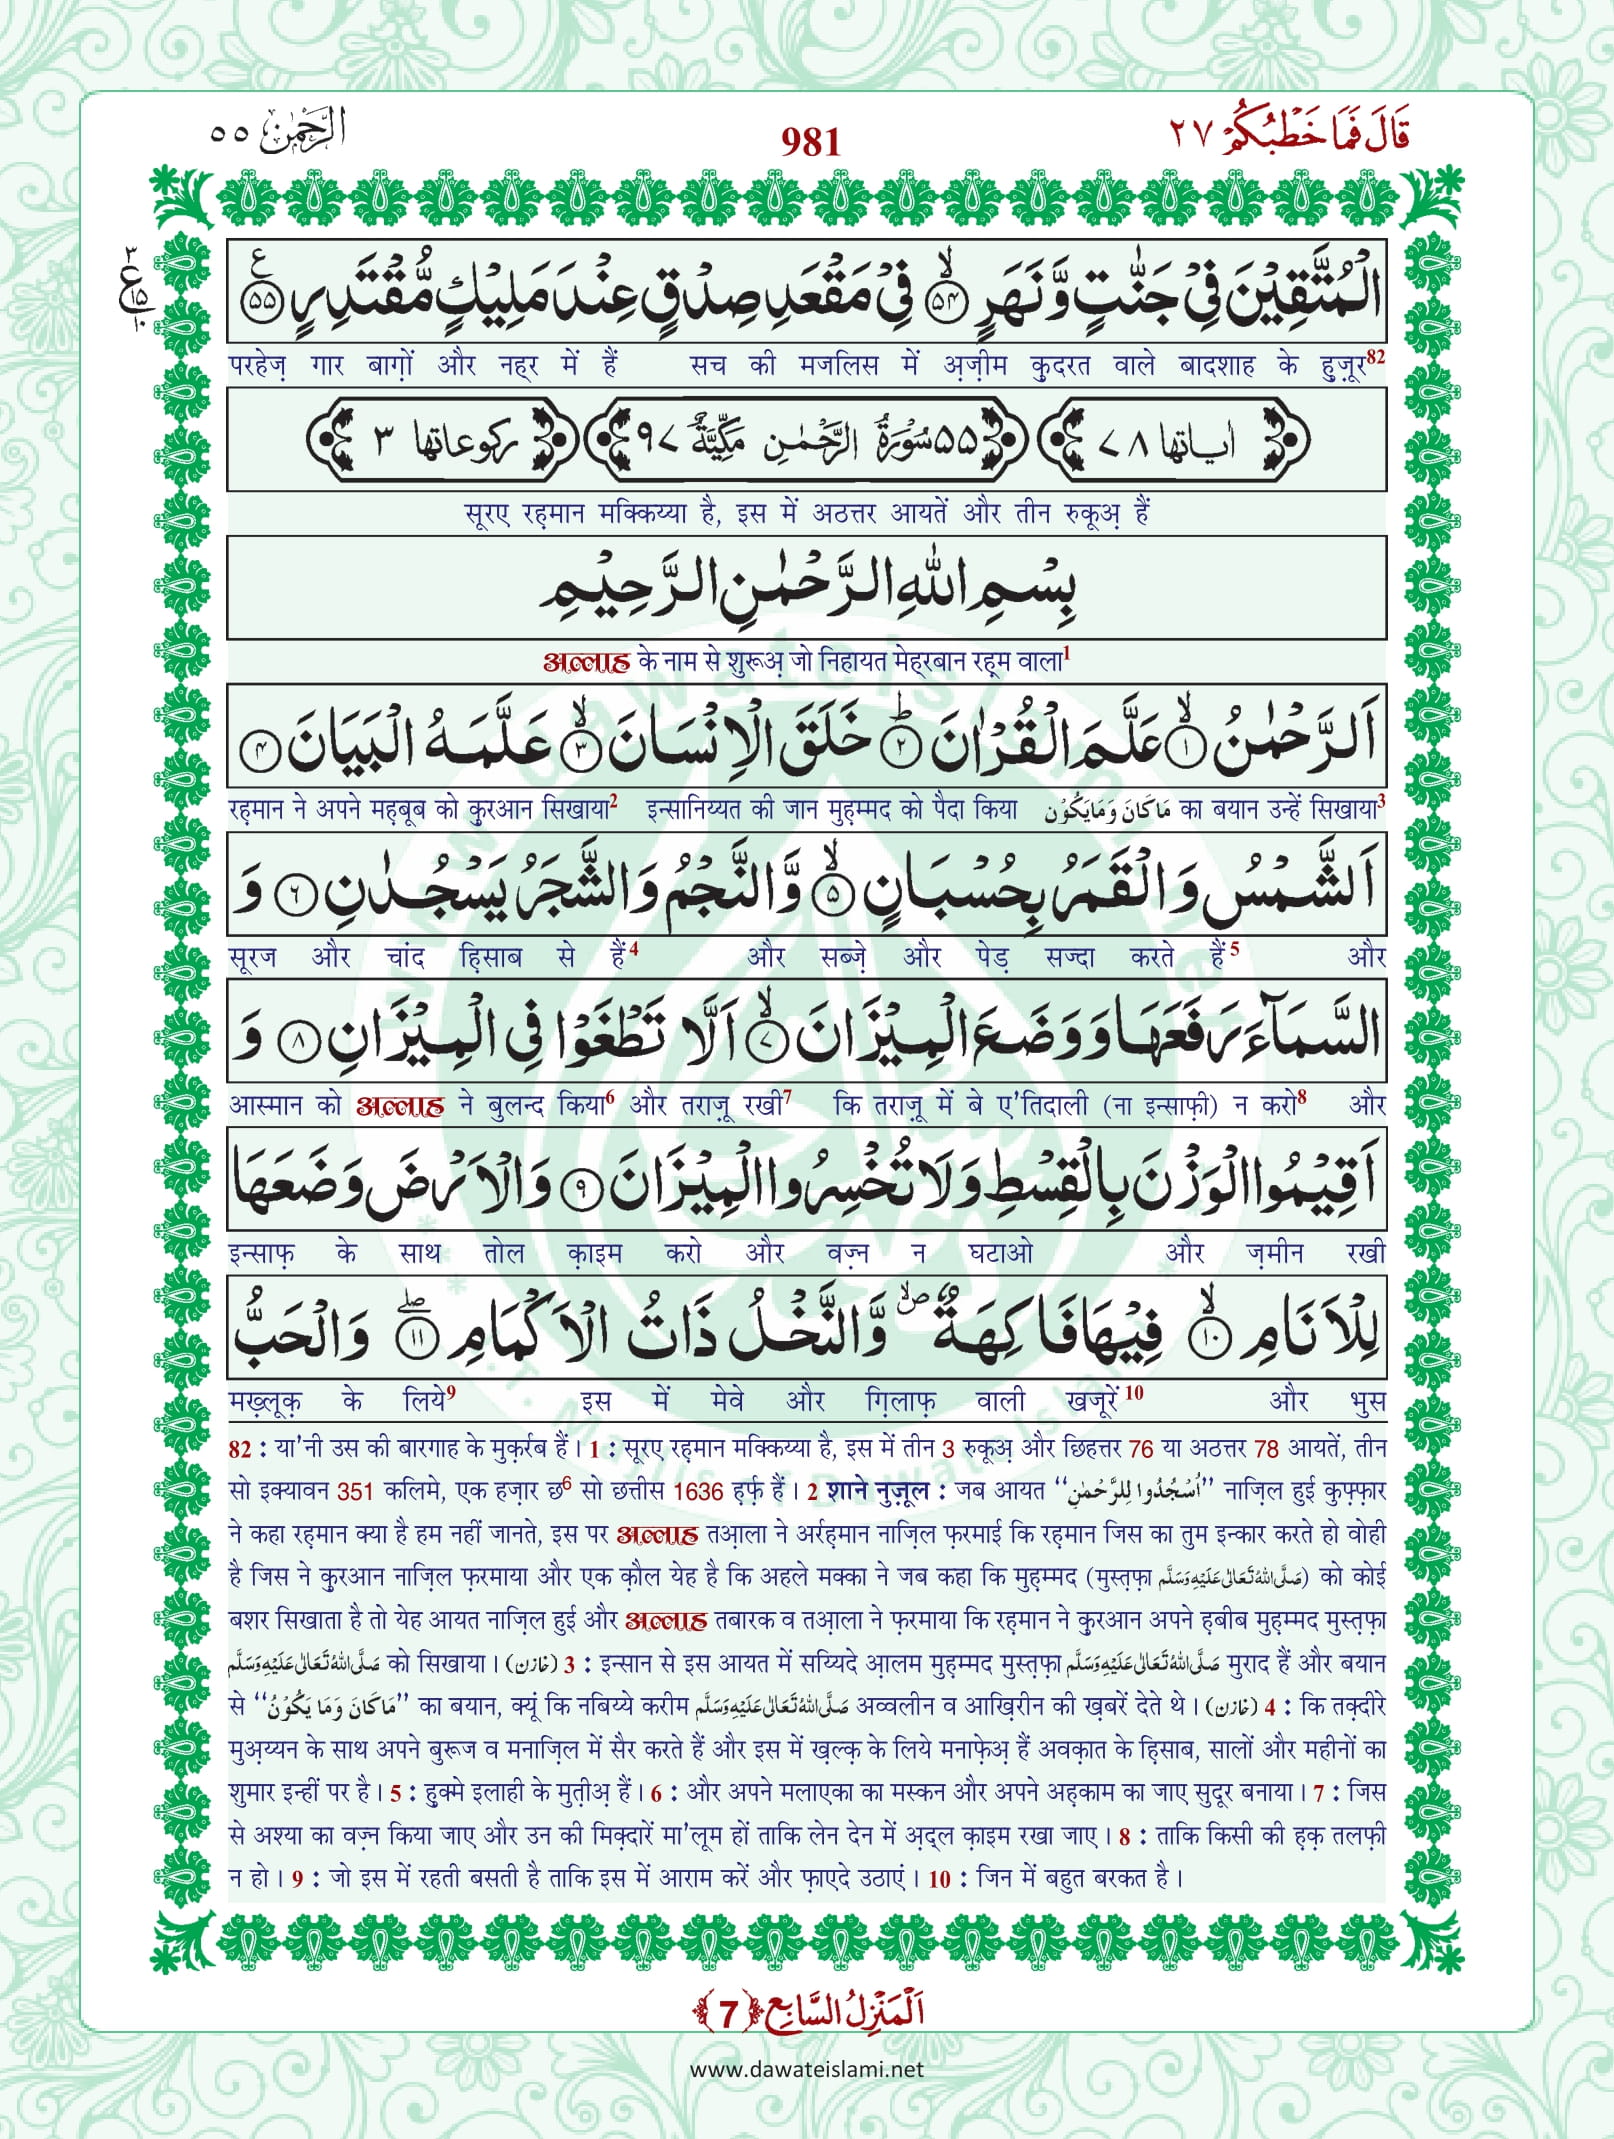 قَالَ فَمَا خَطْبُكُمْ ٢٧
981
الرَّحْمٰن ٥٥
٣ ع ١٥ ١٠
الْمُتَّقِيْنَ فِيْ جَنّٰتٍ وَّنَهَرٍ ﴿٥٤﴾ فِيْ مَقْعَدِ صِدْقٍ عِنْدَ مَلِيْكٍ مُّقْتَدِرٍ ﴿٥٥﴾ ع
परहेज़ गार बाग़ों और नहर में हैं सच की मजलिस में अ़ज़ीम कुदरत वाले बादशाह के हुज़ूर82
اٰياتها ٧٨
٥٥ سُوْرَةُ الرَّحْمٰنِ مَكِّيَّةٌ ٩٧
ركوعاتها ٣
सूरए रह़मान मक्किय्या है, इस में अठत्तर आयतें और तीन रुकूअ़ हैं
بِسْمِ اللّٰهِ الرَّحْمٰنِ الرَّحِيْمِ
अल्लाह के नाम से शुरूअ़ जो निहायत मेहरबान रह़्म वाला1
اَلرَّحْمٰنُ ﴿١﴾ عَلَّمَ الْقُرْاٰنَ ﴿٢﴾ خَلَقَ الْاِنْسَانَ ﴿٣﴾ عَلَّمَهُ الْبَيَانَ ﴿٤﴾
रह़मान ने अपने मह़बूब को कुरआन सिखाया2 इन्सानिय्यत की जान मुह़म्मद को पैदा किया مَاكَانَ وَمَايَكُوْن का बयान उन्हें सिखाया3
اَلشَّمْسُ وَالْقَمَرُ بِحُسْبَانٍ ﴿٥﴾ وَّالنَّجْمُ وَالشَّجَرُ يَسْجُدٰنِ ﴿٦﴾ وَ
सूरज और चांद ह़िसाब से हैं4 और सब्ज़े और पेड़ सज्दा करते हैं5 और
السَّمَآءَ رَفَعَهَا وَوَضَعَ الْمِيْزَانَ ﴿٧﴾ اَلَّا تَطْغَوْا فِي الْمِيْزَانِ ﴿٨﴾ وَ
आस्मान को अल्लाह ने बुलन्द किया6 और तराज़ू रखी7 कि तराज़ू में बे ए'तिदाली (ना इन्साफ़ी) न करो8 और
اَقِيْمُوا الْوَزْنَ بِالْقِسْطِ وَلَا تُخْسِرُوا الْمِيْزَانَ ﴿٩﴾ وَالْاَرْضَ وَضَعَهَا
इन्साफ़ के साथ तोल क़ाइम करो और वज़्न न घटाओ और ज़मीन रखी
لِلْاَنَامِ ﴿١٠﴾ فِيْهَا فَاكِهَةٌ وَّالنَّخْلُ ذَاتُ الْاَكْمَامِ ﴿١١﴾ وَالْحَبُّ
मख़्लूक़ के लिये9 इस में मेवे और ग़िलाफ़ वाली खजूरें10 और भुस
82 : या'नी उस की बारगाह के मुक़र्रब हैं। 1 : सूरए रह़मान मक्किय्या है, इस में तीन 3 रुकूअ़ और छिहत्तर 76 या अठत्तर 78 आयतें, तीन
सो इक्यावन 351 कलिमे, एक हज़ार छ6 सो छत्तीस 1636 ह़र्फ़ हैं। 2 शाने नुज़ूल : जब आयत “اُسْجُدُوا لِلرَّحْمٰنِ” नाज़िल हुई कुफ़्फ़ार
ने कहा रह़मान क्या है हम नहीं जानते, इस पर अल्लाह तआ़ला ने अर्रह़मान नाज़िल फ़रमाई कि रह़मान जिस का तुम इन्कार करते हो वोही
है जिस ने कुरआन नाज़िल फ़रमाया और एक क़ौल येह है कि अहले मक्का ने जब कहा कि मुह़म्मद (मुस्त़फ़ा صَلَّى اللهُ تَعَالٰى عَلَيْهِ وَسَلَّم) को कोई
बशर सिखाता है तो येह आयत नाज़िल हुई और अल्लाह तबारक व तआ़ला ने फ़रमाया कि रह़मान ने कुरआन अपने ह़बीब मुह़म्मद मुस्त़फ़ा
صَلَّى اللهُ تَعَالٰى عَلَيْهِ وَسَلَّم को सिखाया। (خازن) 3 : इन्सान से इस आयत में सय्यिदे आ़लम मुह़म्मद मुस्त़फ़ा صَلَّى اللهُ تَعَالٰى عَلَيْهِ وَسَلَّم मुराद हैं और बयान
से “مَاكَانَ وَمَا يَكُوْنُ” का बयान, क्यूं कि नबिय्ये करीम صَلَّى اللهُ تَعَالٰى عَلَيْهِ وَسَلَّم अव्वलीन व आख़िरीन की ख़बरें देते थे। (خازن) 4 : कि तक़्दीरे
मुअ़य्यन के साथ अपने बुरूज व मनाज़िल में सैर करते हैं और इस में ख़ल्क़ के लिये मनाफ़ेअ़ हैं अवक़ात के ह़िसाब, सालों और महीनों का
शुमार इन्हीं पर है। 5 : हुक्मे इलाही के मुत़ीअ़ हैं। 6 : और अपने मलाएका का मस्कन और अपने अह़काम का जाए सुदूर बनाया। 7 : जिस
से अश्या का वज़्न किया जाए और उन की मिक़्दारें मा'लूम हों ताकि लेन देन में अ़द्ल क़ाइम रखा जाए। 8 : ताकि किसी की ह़क़ तलफ़ी
न हो। 9 : जो इस में रहती बसती है ताकि इस में आराम करें और फ़ाएदे उठाएं। 10 : जिन में बहुत बरकत है।
اَلْمَنْزِلُ السَّابِع ﴿7﴾
www.dawateislami.net